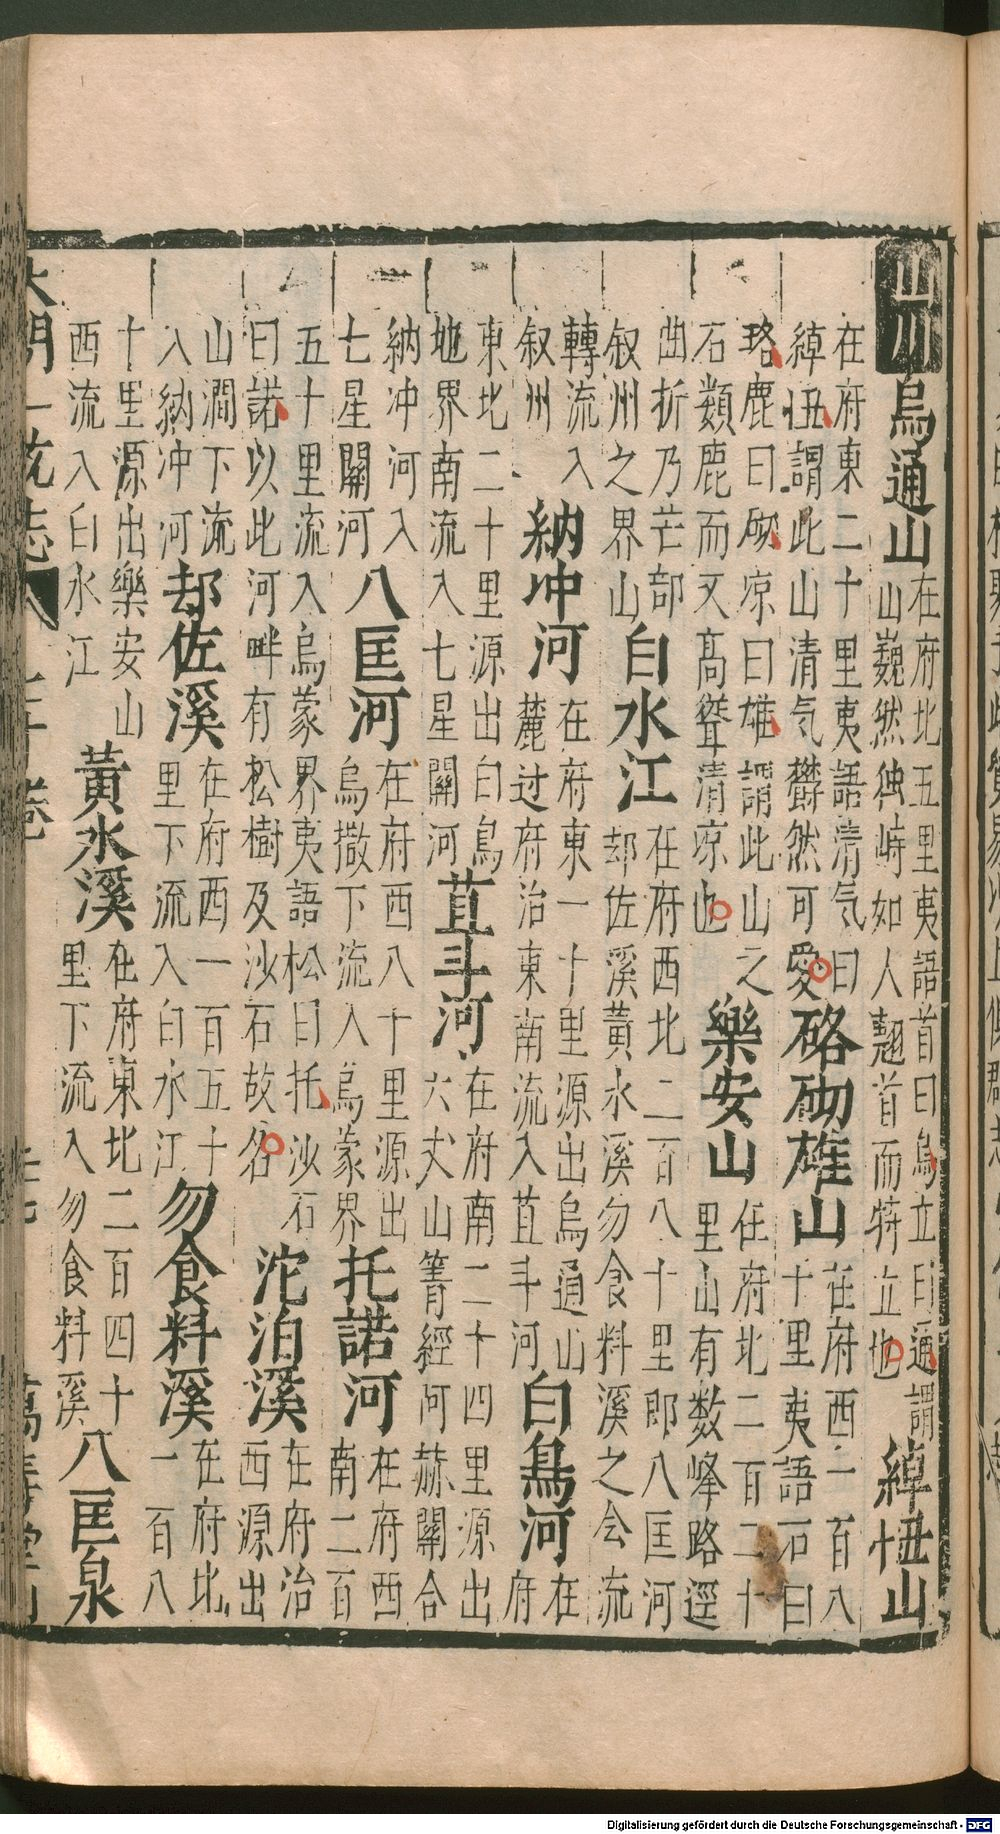 山川烏通山在府北五里夷語首曰烏立曰通謂
山巍然独峙如人翹首而特立也綽忸山
在府東二十里夷語清气曰
綽忸謂此山清气欝然可愛硌砌雄山在府西一百八
十里夷語石曰
硌鹿曰砌凉曰雄謂此山之
石類鹿而又髙聳清凉也樂安山在府北二百二十
里山有数峰路逕
曲折乃芒部
叙州之界山白水江在府西北二百八十里即八匡河
却佐溪黃水溪勿食料溪之会流
轉流入
叙州納冲河在府東一十里源出烏通山
麓过府治東南流入苴斗河白烏河在
府
東北二十里源出白烏
地界南流入七星關河苴斗河在府南二十四里源出
六丈山箐經河蒜關合
納冲河入
七星關河八匡河在府西八十里源出
烏撒下流入烏蒙界托諾河在府西
南二百
五十里流入烏蒙界夷語松曰托沙石
曰諾以此河畔有松樹及沙石故名沱泊溪在府治
西源出
山澗下流
入納冲河却佐溪在府西一百五十
里下流入白水江勿食料溪在府北
一百八
十里源出樂安山
西流入白水江黃水溪在府東北二百四十
里下流入勿食料溪八匡泉
大明一统志 七十 卷 萬壽堂刊
Digitalisierung gefördert durch die Deutsche Forschungsgemeinschaft - DFG